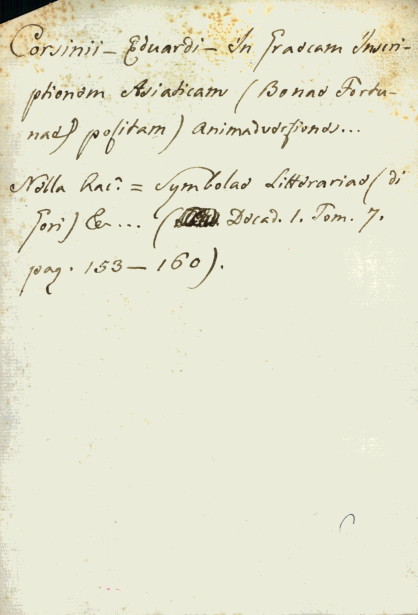 Corsinii – Eduardi – In Graecam Inscri-
ptionem Asiaticam (Bonae Fortu-
nae) positam) Animadversiones...
Nella Rac.ª = Symbolae Litterariae (di
Gori) &c... ( Decad. 1. Tom. 7.
pag. 153 – 160).